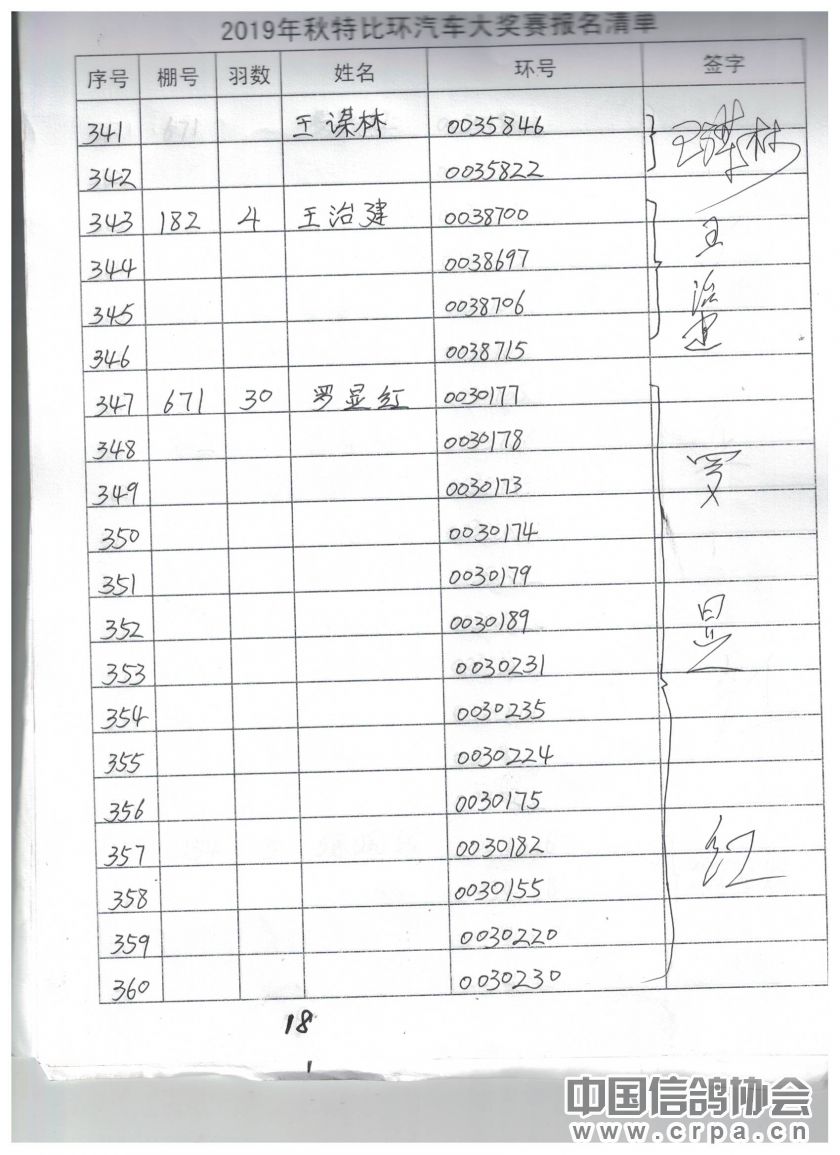 2019年秋特比环汽车大奖赛报名清单
序号 棚号 羽数 姓名 环号 签字
341 王谋林 0035846 王谋林
342 0035822
343 182 4 王治建 0038700 王治建
344 0038697
345 0038706
346 0038715
347 671 30 罗显红 0030177 罗显红
348 0030178
349 0030173
350 0030174
351 0030179
352 0030189
353 0030231
354 0030235
355 0030224
356 0030175
357 0030182
358 0030155
359 0030220
360 0030230
18
中国信鸽协会
www.crpa.cn